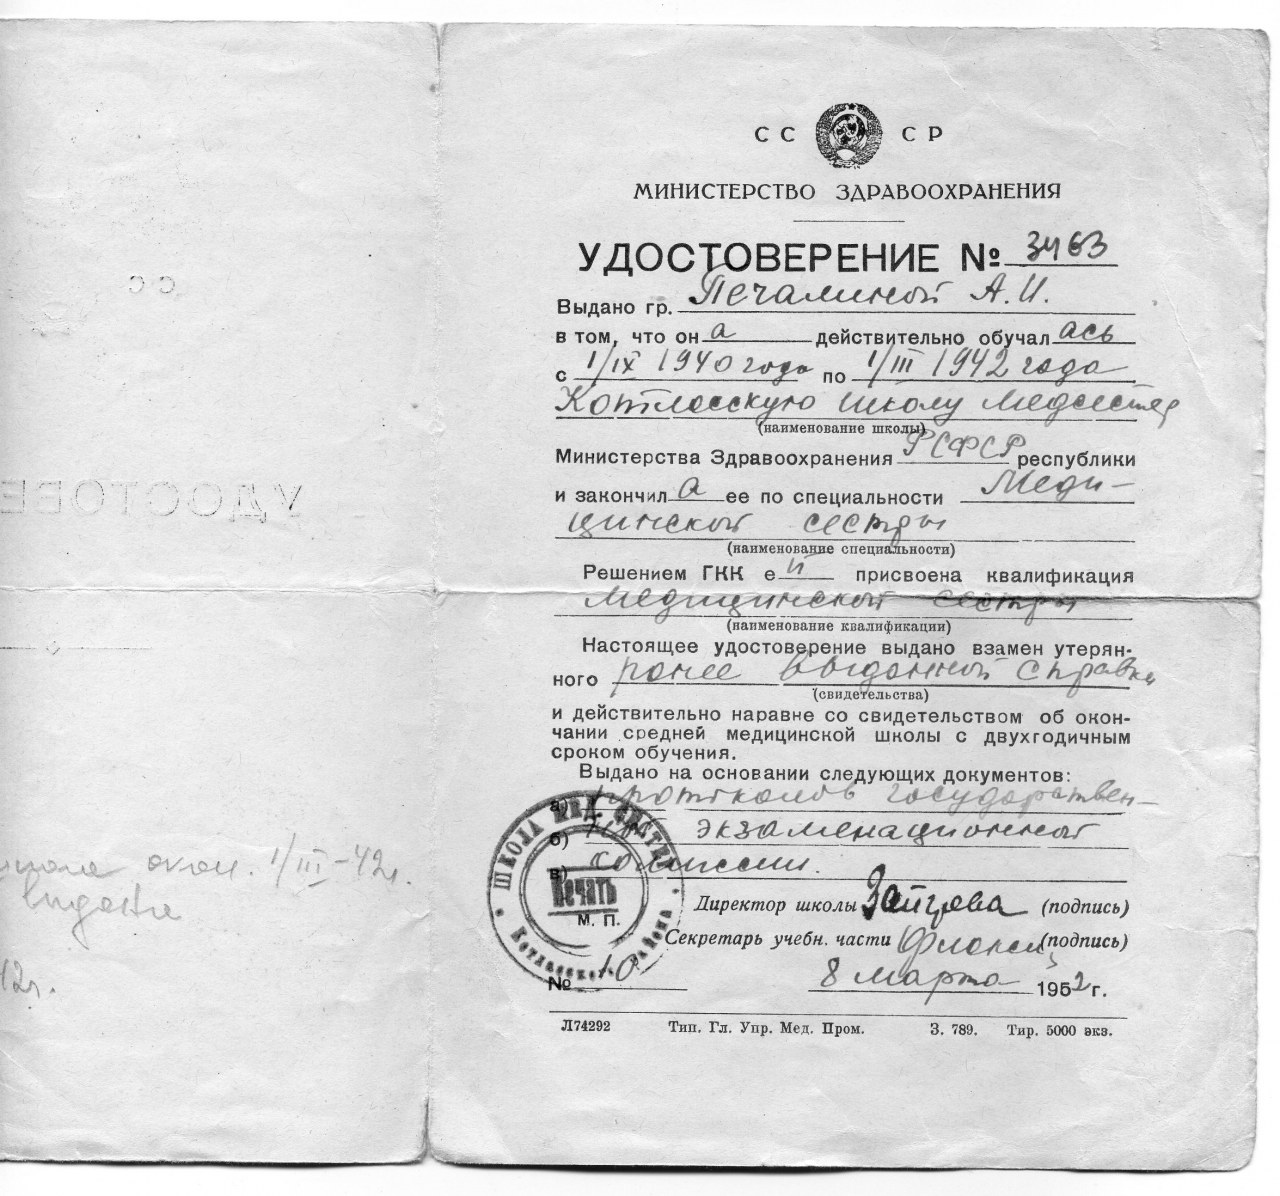 СС СР
МИНИСТЕРСТВО ЗДРАВООХРАНЕНИЯ
УДОСТОВЕРЕНИЕ № 3463
Выдано гр. Печалиной А. И.
в том, что он а действительно обучал ась
с 1/IX 1940 года по 1/III 1942 года
Котласскую школу медсестер
(наименование школы)
Министерства Здравоохранения РСФСР республики
и закончил а ее по специальности Меди-
цинской сестры
(наименование специальности)
Решением ГКК ей присвоена квалификация
медицинской сестры
(наименование квалификации)
Настоящее удостоверение выдано взамен утерян-
ного ранее выданной справки
(свидетельства)
и действительно наравне со свидетельством об окон-
чании средней медицинской школы с двухгодичным
сроком обучения.
Выдано на основании следующих документов:
а) протоколов государствен-
б) ной экзаменационной
в) комиссии.
Директор школы Зайцева (подпись)
Секретарь учебн. части (подпись)
М. П.
ШКОЛА МЕД. СЕСТЕР
Печать
Котласского района
№ 10 8 марта 1952 г.
Л74292 Тип. Гл. Упр. Мед. Пром. З. 789. Тир. 5000 экз.
СС
УДОСТОВЕ
окон. 1/III-42г.
42г.